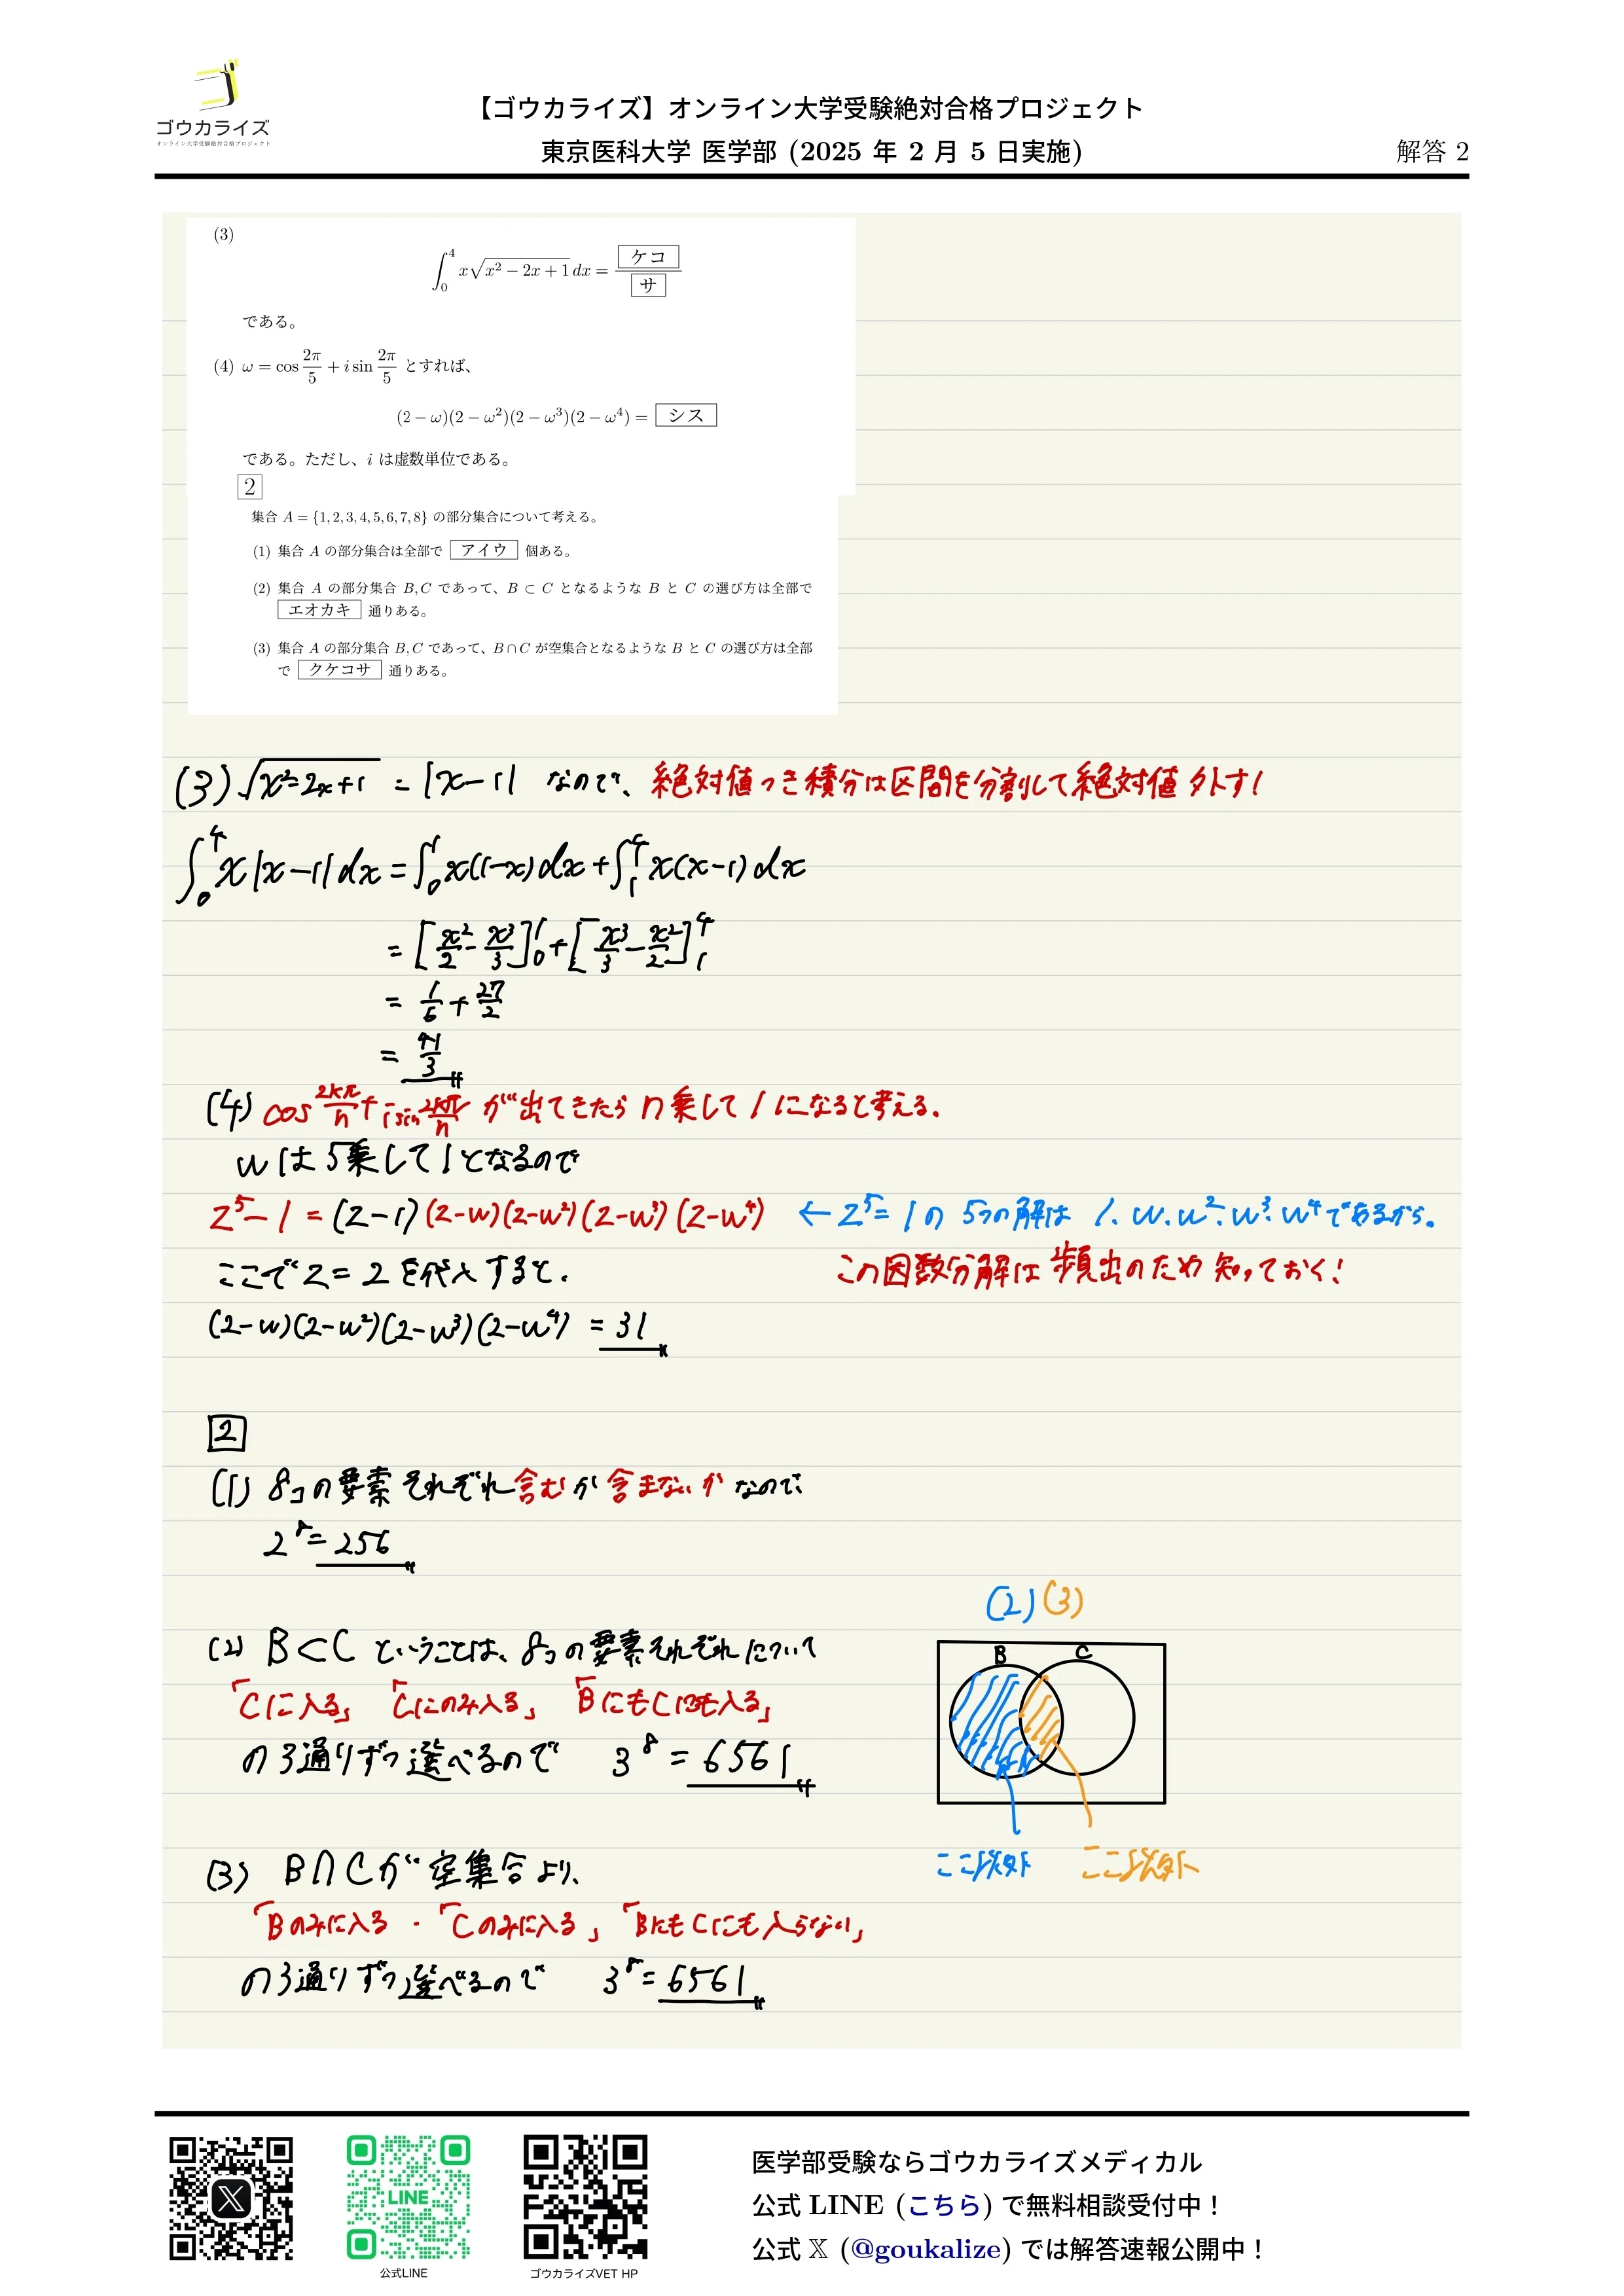 ゴウカライズ
オンライン大学受験絶対合格プロジェクト
【ゴウカライズ】オンライン大学受験絶対合格プロジェクト
東京医科大学 医学部 (2025 年 2 月 5 日実施)
解答 2
(3)
∫₀⁴ x√(x² − 2x + 1) dx = ケコ / サ
である。
(4) ω = cos 2π/5 + i sin 2π/5 とすれば、
(2 − ω)(2 − ω²)(2 − ω³)(2 − ω⁴) = シス
である。ただし、i は虚数単位である。
2
集合 A = {1, 2, 3, 4, 5, 6, 7, 8} の部分集合について考える。
(1) 集合 A の部分集合は全部で アイウ 個ある。
(2) 集合 A の部分集合 B, C であって、B ⊂ C となるような B と C の選び方は全部で
エオカキ 通りある。
(3) 集合 A の部分集合 B, C であって、B ∩ C が空集合となるような B と C の選び方は全部
で クケコサ 通りある。
(3) √(x²−2x+1) = |x−1| なので、絶対値つき積分は区間を分割して絶対値外す!
∫₀⁴ x|x−1|dx = ∫₀¹ x(1−x)dx + ∫₁⁴ x(x−1)dx
= [x²/2 − x³/3]₀¹ + [x³/3 − x²/2]₁⁴
= 1/6 + 27/2
= 41/3
(4) cos 2kπ/n + i sin 2kπ/n が出てきたら n乗して1になると考える。
wは5乗して1となるので
z⁵−1 = (z−1)(z−w)(z−w²)(z−w³)(z−w⁴) ← z⁵=1の 5つの解は 1、w、w²、w³、w⁴であるから。
ここでz=2を代入すると、 この因数分解は頻出のため知っておく!
(2−w)(2−w²)(2−w³)(2−w⁴) = 31
2
(1) 8コの要素それぞれ含むか含まないかなので、
2⁸=256
(2) (3)
(2) B⊂C ということは、8コの要素それぞれについて
B C
「Cに入る」 「Cにのみ入る」 「BにもCにも入る」
の3通りずつ選べるので 3⁸=6561
ここ以外 ここ以外
(3) B∩Cが空集合より、
「Bのみに入る ・「Cのみに入る」「BにもCにも入らない」
の3通りずつ選べるので 3⁸=6561
LINE
公式LINE
ゴウカライズVET HP
医学部受験ならゴウカライズメディカル
公式 LINE (こちら) で無料相談受付中！
公式 𝕏 (@goukalize) では解答速報公開中！